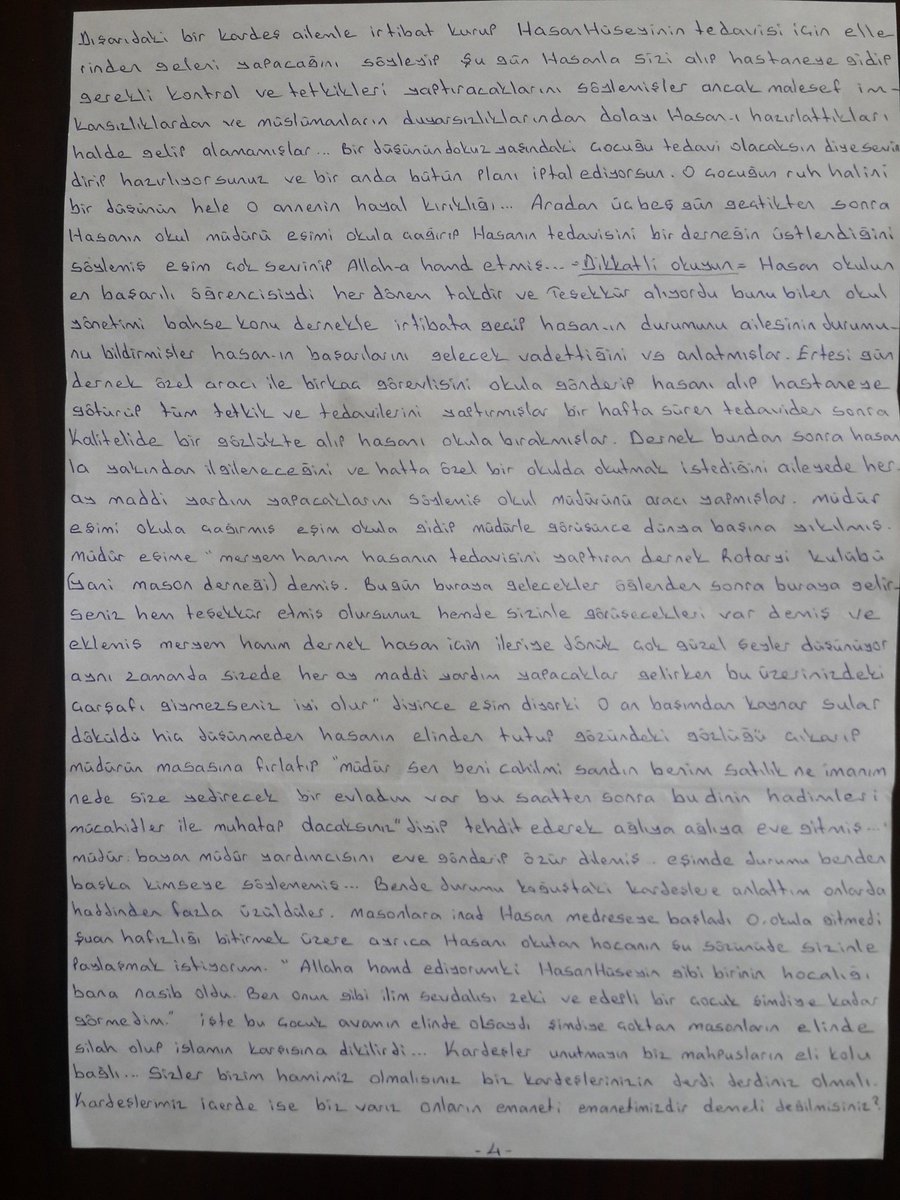 Dışarıdaki bir kardeş ailemle irtibat kurup HasanHüseyinin tedavisi için elle
rinden geleni yapacağını söyleyip şu gün Hasanla sizi alıp hastaneye gidip
gerekli kontrol ve tetkikleri yaptıracaklarını söylemişler ancak malesef im-
kansızlıklardan ve müslümanların duyarsızlıklarından dolayı Hasan-ı hazırlattıkları
halde gelip alamamışlar... Bir düşünün dokuz yaşındaki çocuğu tedavi olacaksın diye sevin
dirip hazırlıyorsunuz ve bir anda bütün planı iptal ediyorsun. O çocuğun ruh halini
bir düşünün hele O annenin hayal kırıklığı... Aradan üç beş gün geçtikten sonra
Hasanın okul müdürü eşimi okula çağırıp Hasanın tedavisini bir derneğin üstlendiğini
söylemiş eşim çok sevinip Allah-a hamd etmiş... =Dikkatli okuyun= Hasan okulun
en başarılı öğrencisiydi her dönem takdir ve Teşekkür alıyordu bunu bilen okul
yönetimi bahse konu dernekle irtibata geçip hasan-ın durumunu ailesinin durumu-
nu bildirmişler hasan-ın başarılarını gelecek vadettiğini vs anlatmışlar. Ertesi gün
dernek özel aracı ile birkaç görevlisini okula gönderip hasanı alıp hastaneye
götürüp tüm tetkik ve tedavilerini yaptırmışlar bir hafta süren tedaviden sonra
Kalitelide bir gözlükte alıp hasanı okula bırakmışlar. Dernek bundan sonra hasan
la yakından ilgileneceğini ve hatta özel bir okulda okutmak istediğini aileyede her
ay maddi yardım yapacaklarını söylemiş okul müdürünü aracı yapmışlar. Müdür
eşimi okula çağırmış eşim okula gidip müdürle görüşünce dünya başına yıkılmış.
Müdür eşime "meryem hanım hasanın tedavisini yaptıran dernek Rotaryi kulübü
(yani mason derneği) demiş. Bugün buraya gelecekler öğlenden sonra buraya gelir-
seniz hem teşekkür etmiş olursunuz hemde sizinle görüşecekleri var demiş ve
eklemiş meryem hanım dernek hasan için ileriye dönük çok güzel şeyler düşünüyor
aynı zamanda sizede her ay maddi yardım yapacaklar gelirken bu üzerinizdeki
çarşafı giymezseniz iyi olur" diyince eşim diyorki O an başımdan kaynar sular
döküldü hiç düşünmeden hasanın elinden tutup gözündeki gözlüğü çıkarıp
müdürün masasına fırlatıp "müdür sen beni cahilmi sandın benim satılık ne imanım
nede size yedirecek bir evladım var bu saatten sonra bu dinin hadimleri
mücahidler ile muhatap olacaksınız" diyip tehdit ederek ağlıya ağlıya eve gitmiş...
müdür. bayan müdür yardımcısını eve gönderip özür dilemiş. eşimde durumu benden
başka kimseye söylememiş... Bende durumu koğuştaki kardeşlere anlattım onlarda
haddinden fazla üzüldüler. masonlara inad Hasan medreseye başladı O. okula gitmedi
Şuan hafızlığı bitirmek üzere ayrıca Hasanı okutan hocanın şu sözünüde sizinle
Paylaşmak istiyorum. " Allaha hamd ediyorumki HasanHüseyin gibi birinin hocalığı
bana nasib oldu. Ben onun gibi ilim sevdalısı zeki ve edepli bir çocuk şimdiye kadar
görmedim." işte bu çocuk avamın elinde olsaydı şimdiye çoktan masonların elinde
silah olup islamın karşısına dikilirdi... Kardeşler unutmayın biz mahpusların eli kolu
bağlı... Sizler bizim hamimiz olmalısınız biz kardeşlerinizin derdi derdiniz olmalı.
Kardeşlerimiz içerde ise biz varız onların emaneti emanetimizdir demeli değilmisiniz?
-4-